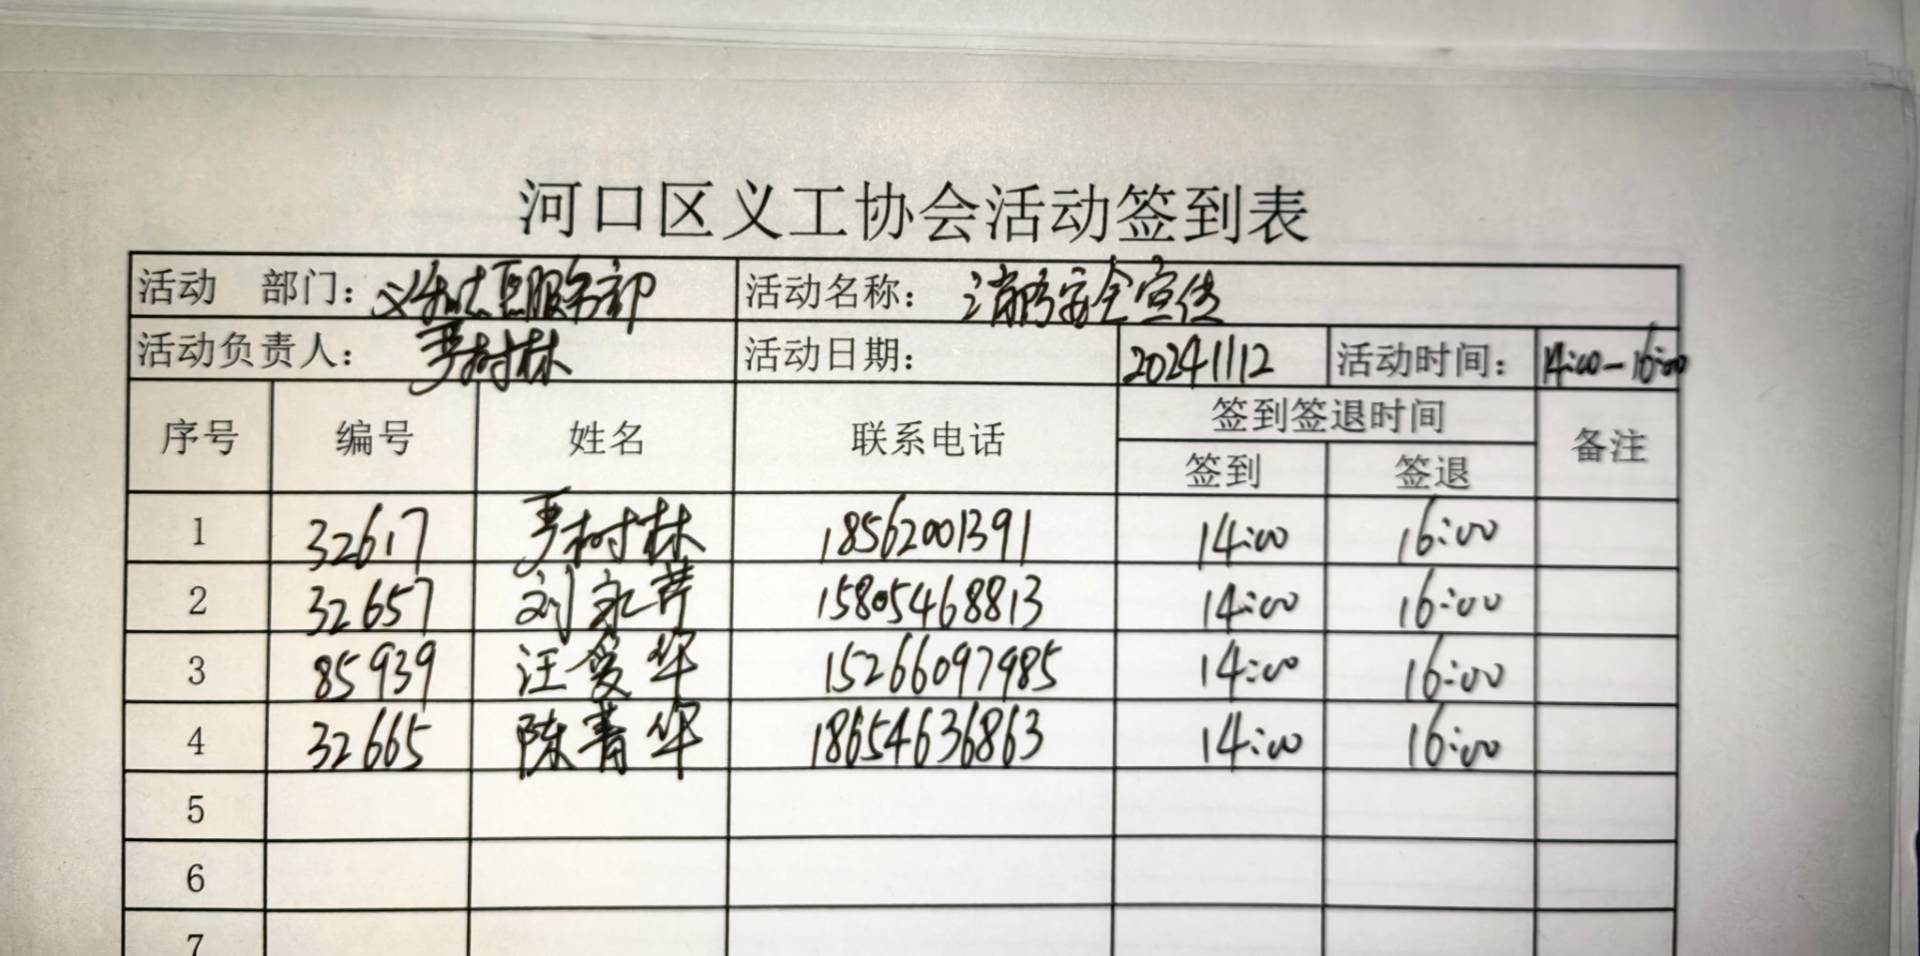 河口区义工协会活动签到表
活动 部门: 服务部 活动名称: 消防安全宣传
活动负责人: 严树林 活动日期: 20241112 活动时间: 14:00-16:00
序号 编号 姓名 联系电话 签到签退时间 备注
签到 签退
1 32617 严树林 18562001391 14:00 16:00
2 32657 刘永芹 15805468813 14:00 16:00
3 85939 汪爱华 15266097985 14:00 16:00
4 32665 陈青华 18654636863 14:00 16:00
5
6
7